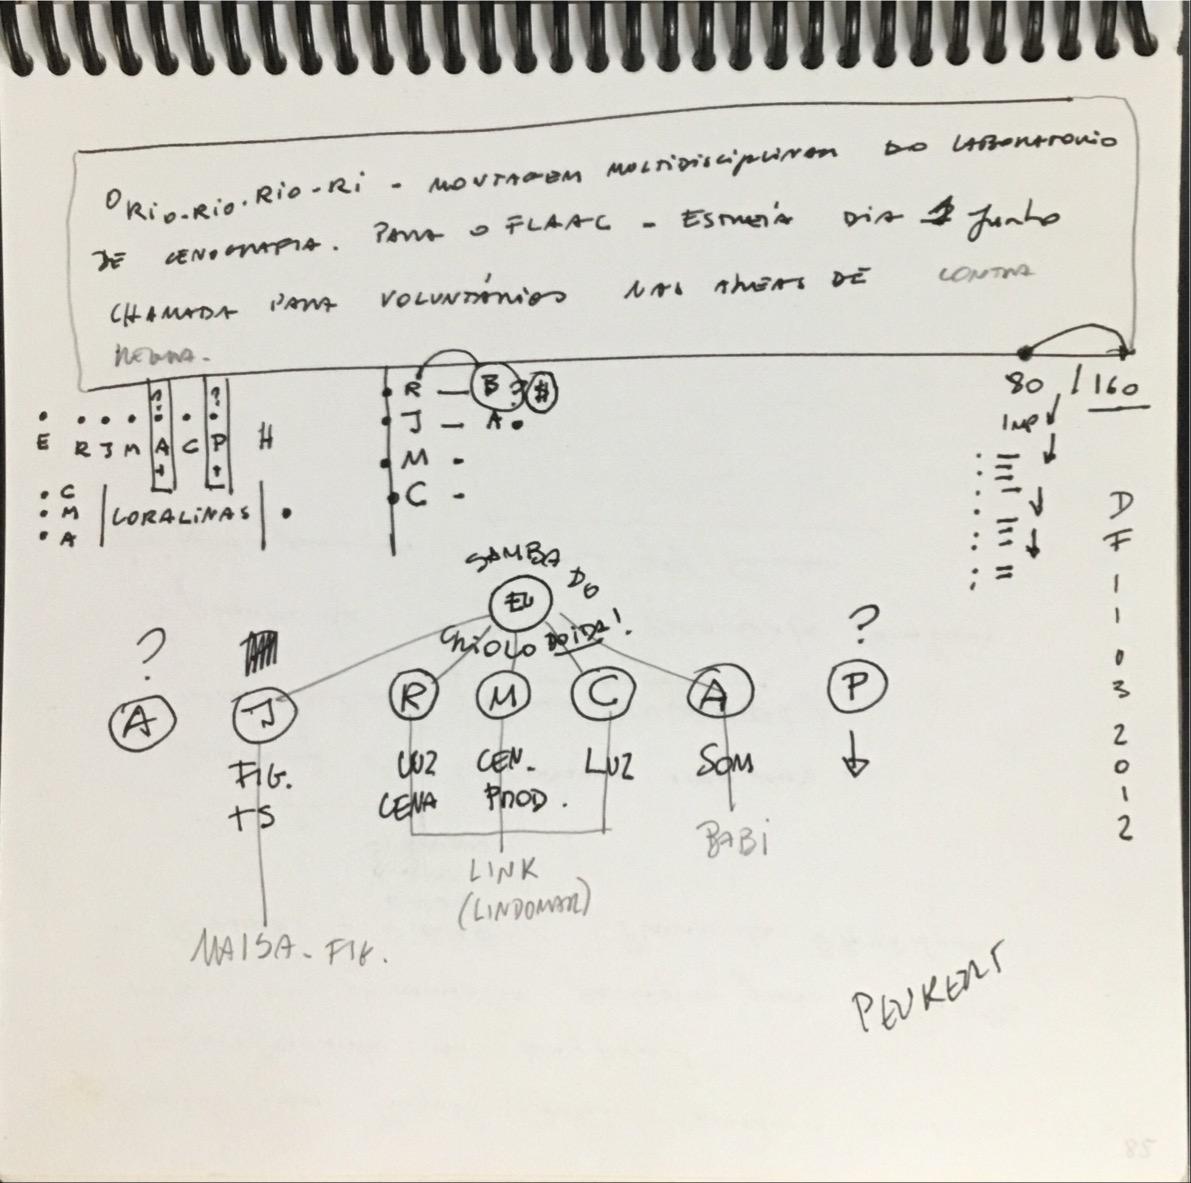 O RIO-RIO-RIO-RI - MONTAGEM MULTIDISCIPLINAR DO LABORATORIO
DE CENOGRAFIA. PARA O FLAAC - ESTREIA DIA 1 Junho
CHAMADA PARA VOLUNTÁRIOS NAS AREAS DE CONTRA
REGRA.
? ?
E R J M A C P H
+ +
C
M
A
CORALINAS
R — B ? #
J — A
M -
C -
80 / 160
IMP
D
F
1
1
0
3
2
0
1
2
SAMBA DO
EU
CRIOLO DOIDA!
? ?
A J R M C A P
FIG. LUZ CEN. LUZ SOM
+S CENA PROD.
BABI
LINK
(LINDOMAR)
MAISA - FIG.
PEUKERT
85